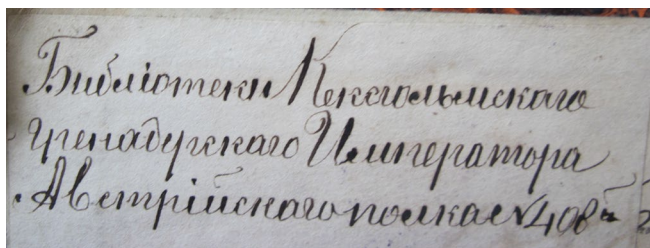 Библіотеки Кексгольмскаго
Гренадерскаго Императора
Австрійскаго полка №408й